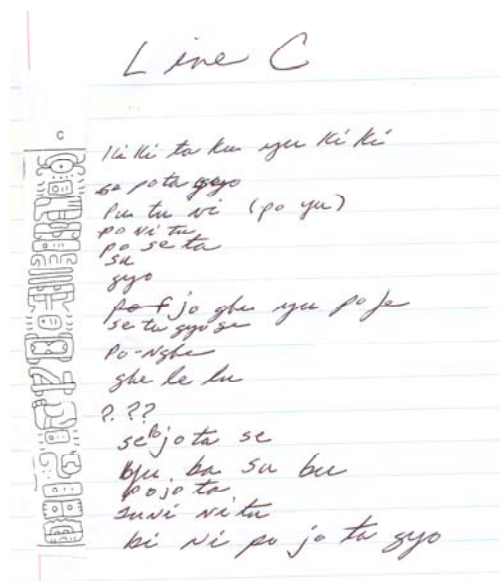 Line C
C
Ki Ki ta ku yu Ki Ki
pota gyo
Pu tu vi (po yu)
po vi tu
po se ta
su
gyo
jo ghe yu po je
se tu gyo se
Po-Nghe
ghe le lu
? ??
se po jo ta se
bju ba su bu
pojo ta
suvi vi tu
bi vi po jo ta gyo